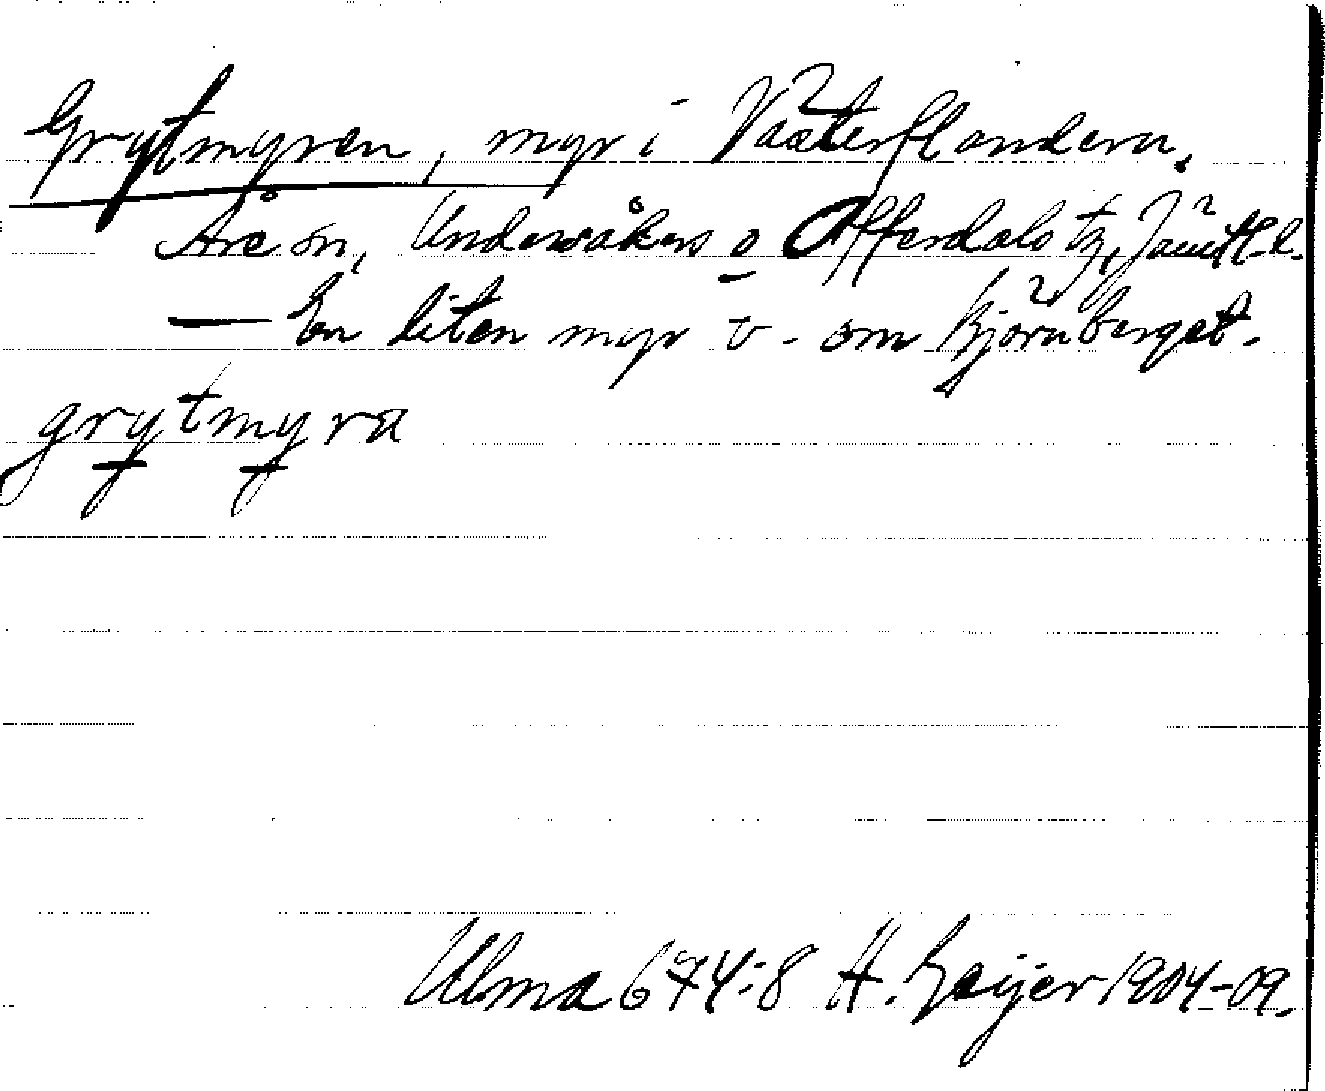 Grytmyren, myr i Västerflandern,
Åre sn, Undersåkers o Offerdals tg, Jämtl. l.
— En liten myr v. om Björnberget.
grytmyra
Ulma 674:8 H. Geijer 1904-09.